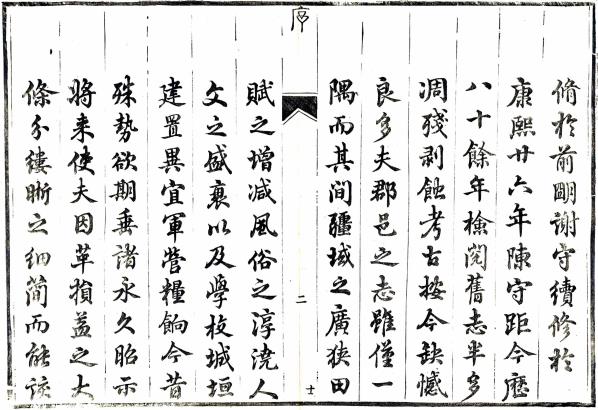 序
脩於前明謝守續修於
康熙廿六年陳守距今歷
八十餘年檢閱舊志半多
凋殘剥蝕考古按今缺憾
良多夫郡邑之志雖僅一
隅而其間疆域之廣狹田
二
十
賦之增减風俗之淳澆人
文之盛衰以及學校城垣
建置異宜軍營糧餉今昔
殊勢欲期垂諸永久昭示
將来使夫因革損益之大
條分縷晰之細簡而能該